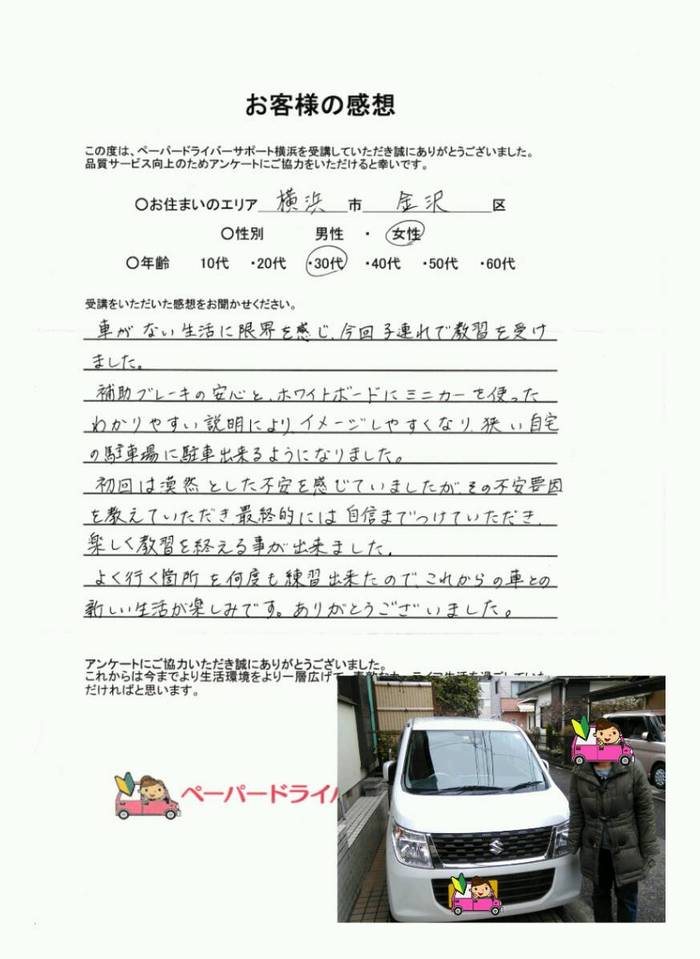 お客様の感想
この度は、ペーパードライバーサポート横浜を受講していただき誠にありがとうございました。
品質サービス向上のためアンケートにご協力をいただけると幸いです。
〇お住まいのエリア 横浜 市 金沢 区
〇性別 男性 ・ 女性
〇年齢 10代 ・20代 ・30代 ・40代 ・50代 ・60代
受講をいただいた感想をお聞かせください。
車がない生活に限界を感じ、今回子連れで教習を受け
ました。
補助ブレーキの安心と、ホワイトボードにミニカーを使った
わかりやすい説明により、イメージしやすくなり、狭い自宅
の駐車場に駐車出来るようになりました。
初回は漠然とした不安を感じていましたが、その不安要因
を教えていただき最終的には自信までつけていただき、
楽しく教習を終える事が出来ました。
よく行く箇所を何度も練習出来たので、これからの車との
新しい生活が楽しみです。ありがとうございました。
アンケートにご協力いただき誠にありがとうございました。
これからは今までより生活環境をより一層広げて、
だければと思います。
ペーパードライバ